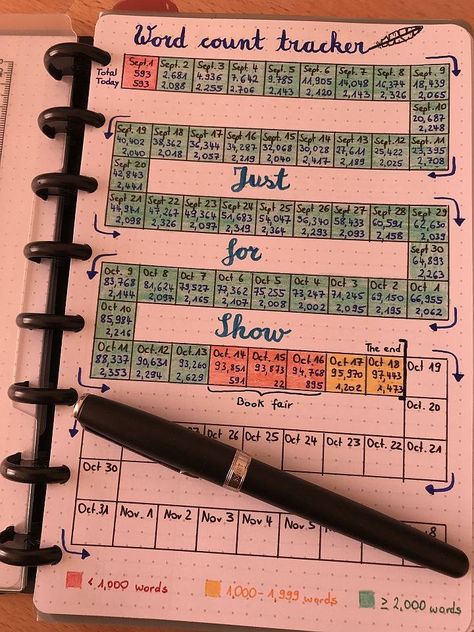 Word count tracker
Sept.1 Sept. 2 Sept. 3 Sept. 4 Sept. 5 Sept. 6 Sept. 7 Sept. 8 Sept. 9
Total 593 2,681 4.936 7.642 9.785 11,905 14,048 16,374 18,439
Today 593 2.088 2.255 2.706 2,143 2,120 2,143 2,326 2,065
Sept. 10
20,687
2,248
Sept. 19 Sept 18 Sept 17 Sept.16 Sept.15 Sept.14 Sept.13 Sept.12 Sept.11
40,402 38,362 36,344 34,287 32,068 30,028 27,611 25,422 23,395
2,040 2,018 2,057 2,219 2,040 2,417 2,189 2,025 2,708
Sept 20
42,843
2,441
Just
Sept 21 Sept.22 Sept.23 Sept.24 Sept.25 Sept.26 Sept.27 Sept.28 Sept.29
44,941 47,267 49,364 51,683 54,047 56,340 58,433 60,591 62,630
2,098 2,326 2,097 2,319 2,364 2,293 2,093 2,158 2,039
Sept.30
64,893
2,263
for
Oct. 9 Oct 8 Oct 7 Oct 6 Oct 5 Oct 4 Oct 3 Oct 2 Oct 1
83,768 81,624 79,527 77,362 75,255 73,247 71,245 69,150 66,955
2,144 2,097 2,165 2,107 2,008 2,002 2,095 2,195 2,062
Oct 10
85,984
2,216
Show
The end
Oct 11 Oct.12 Oct.13 Oct.14 Oct.15 Oct.16 Oct 17 Oct 18 Oct 19
88,337 90,631 93,260 93,851 93,873 94,768 95,970 97,443
2,353 2,294 2,629 591 22 895 1,202 1,473
Book fair
Oct 20
27 Oct 26 Oct 25 Oct 24 Oct 23 Oct 22 Oct.21
Oct 30
Oct.31 Nov. 1 Nov 2 Nov 3 Nov 4 Nov.5 8
< 1,000 words 1,000-1,999 words ≥ 2,000 words